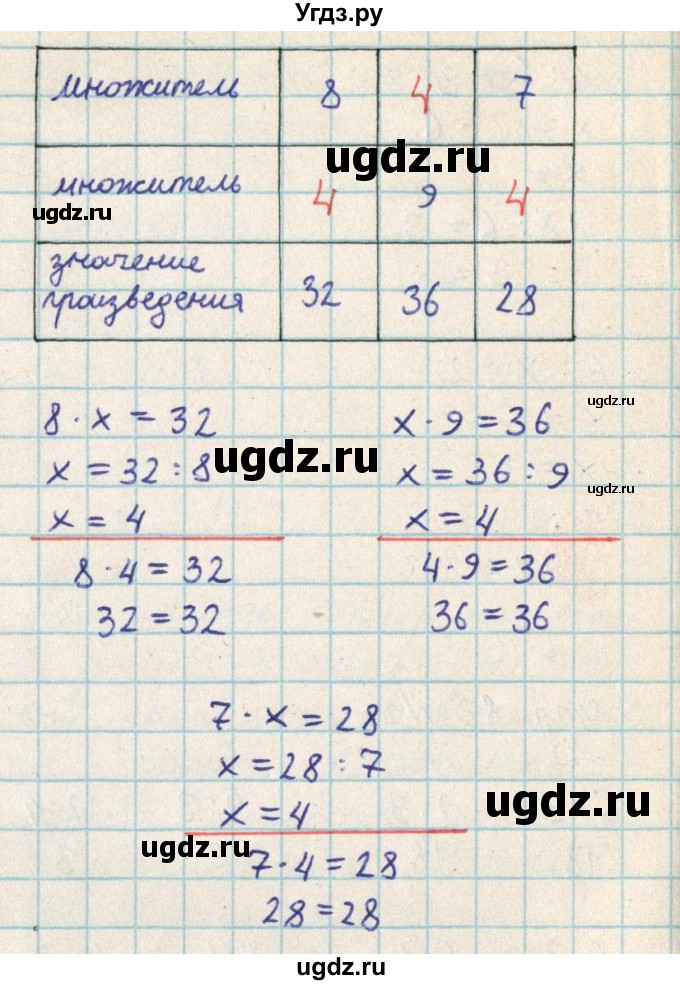 Угдз.ру
множитель 8 4 7
ugdz.ru
множитель 4 9 4
ugdz.ru
значение
произведения 32 36 28
ugdz.ru
8 · x = 32
x = 32 : 8
x = 4
8 · 4 = 32
32 = 32
ugdz.ru
x · 9 = 36
x = 36 : 9
x = 4
4 · 9 = 36
36 = 36
ugdz.ru
7 · x = 28
x = 28 : 7
x = 4
7 · 4 = 28
28 = 28
ugdz.ru
ugdz.ru
ugdz.ru